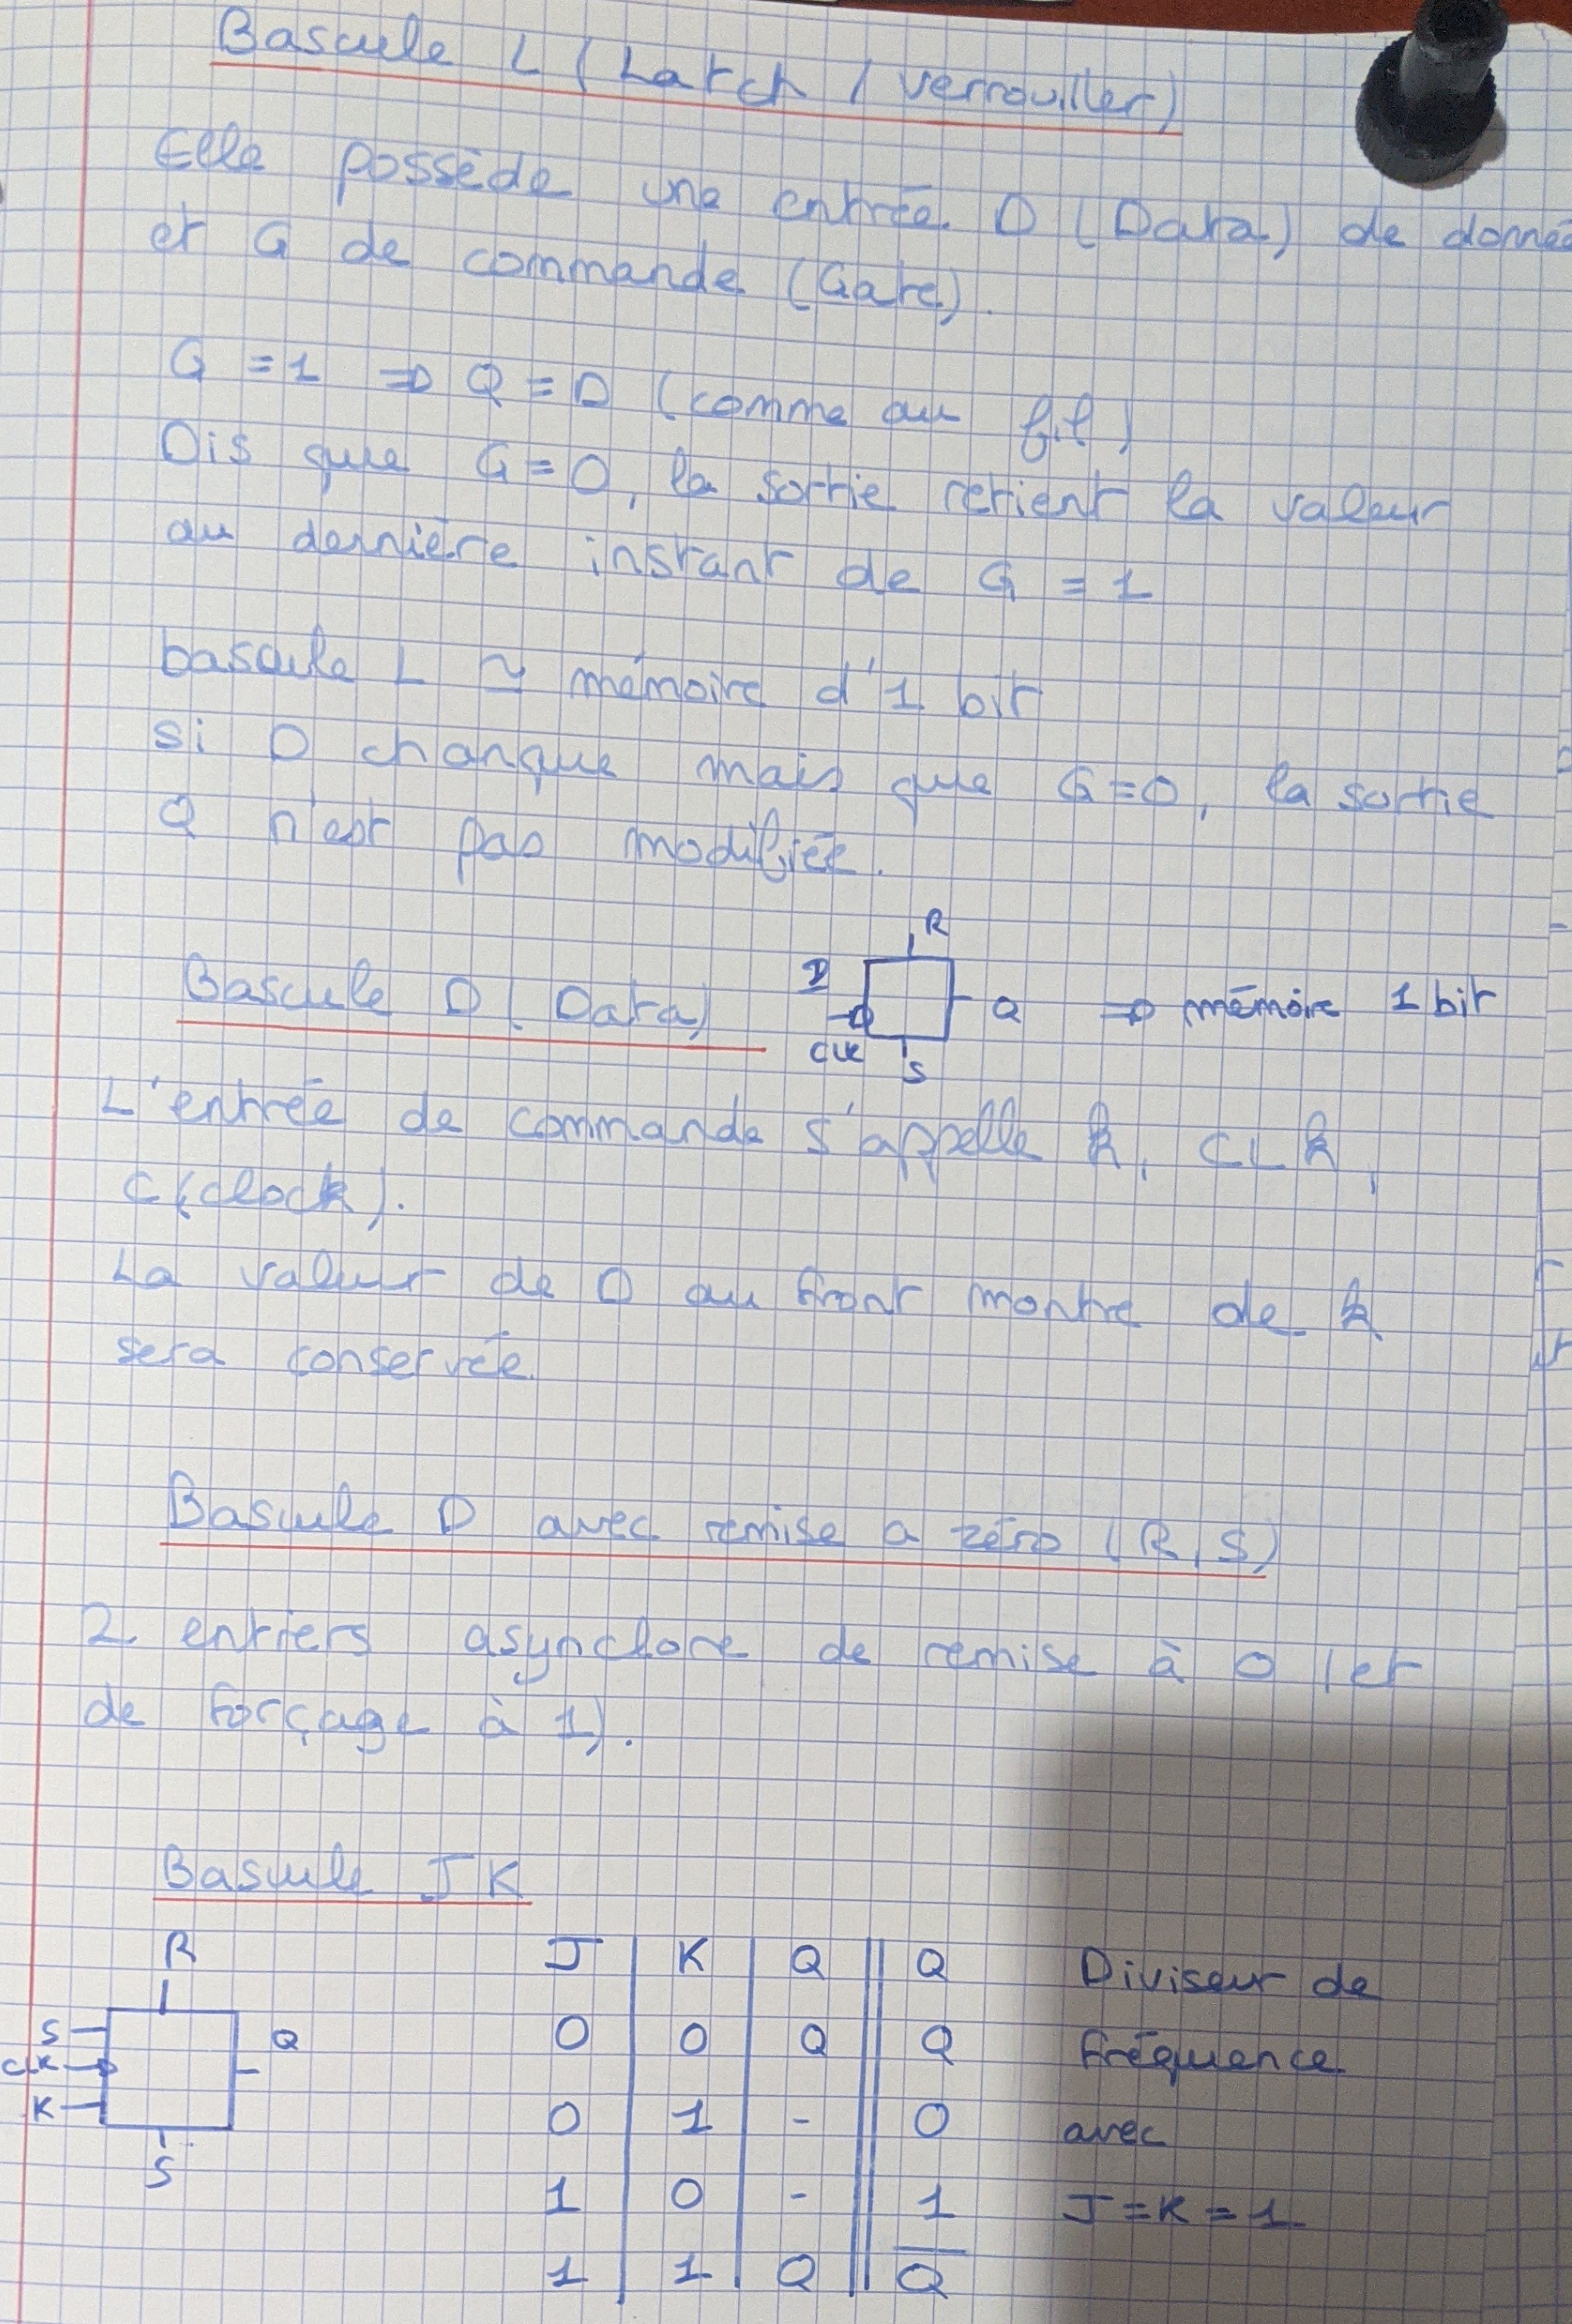 Bascule L (Latch / verrouiller)
Elle possède une entrée D (Data) de donné
et G de commande (Gate).
G = 1 => Q = D (comme au fil)
Dis que G = 0, la sortie retient la valeur
au dernière instant de G = 1
bascule L ≃ mémoire d'1 bit
si D changue mais que G = 0, la sortie
Q n'est pas modifiée.
Bascule D (Data)
R
D
CLK
S
Q => mémoire 1 bit
L'entrée de commande s'appelle k, CLk,
C (clock).
La valeur de D au front montre de k
sera conservée.
Bascule D avec remise a zéro (R, S)
2 entiers asynclore de remise à 0 (et
de forçage à 1).
Bascule JK
R
S
CLK
K
S
Q
J K Q Q
0 0 Q Q
0 1 - 0
1 0 - 1
1 1 Q Q̅
Diviseur de
fréquence
avec
J = K = 1